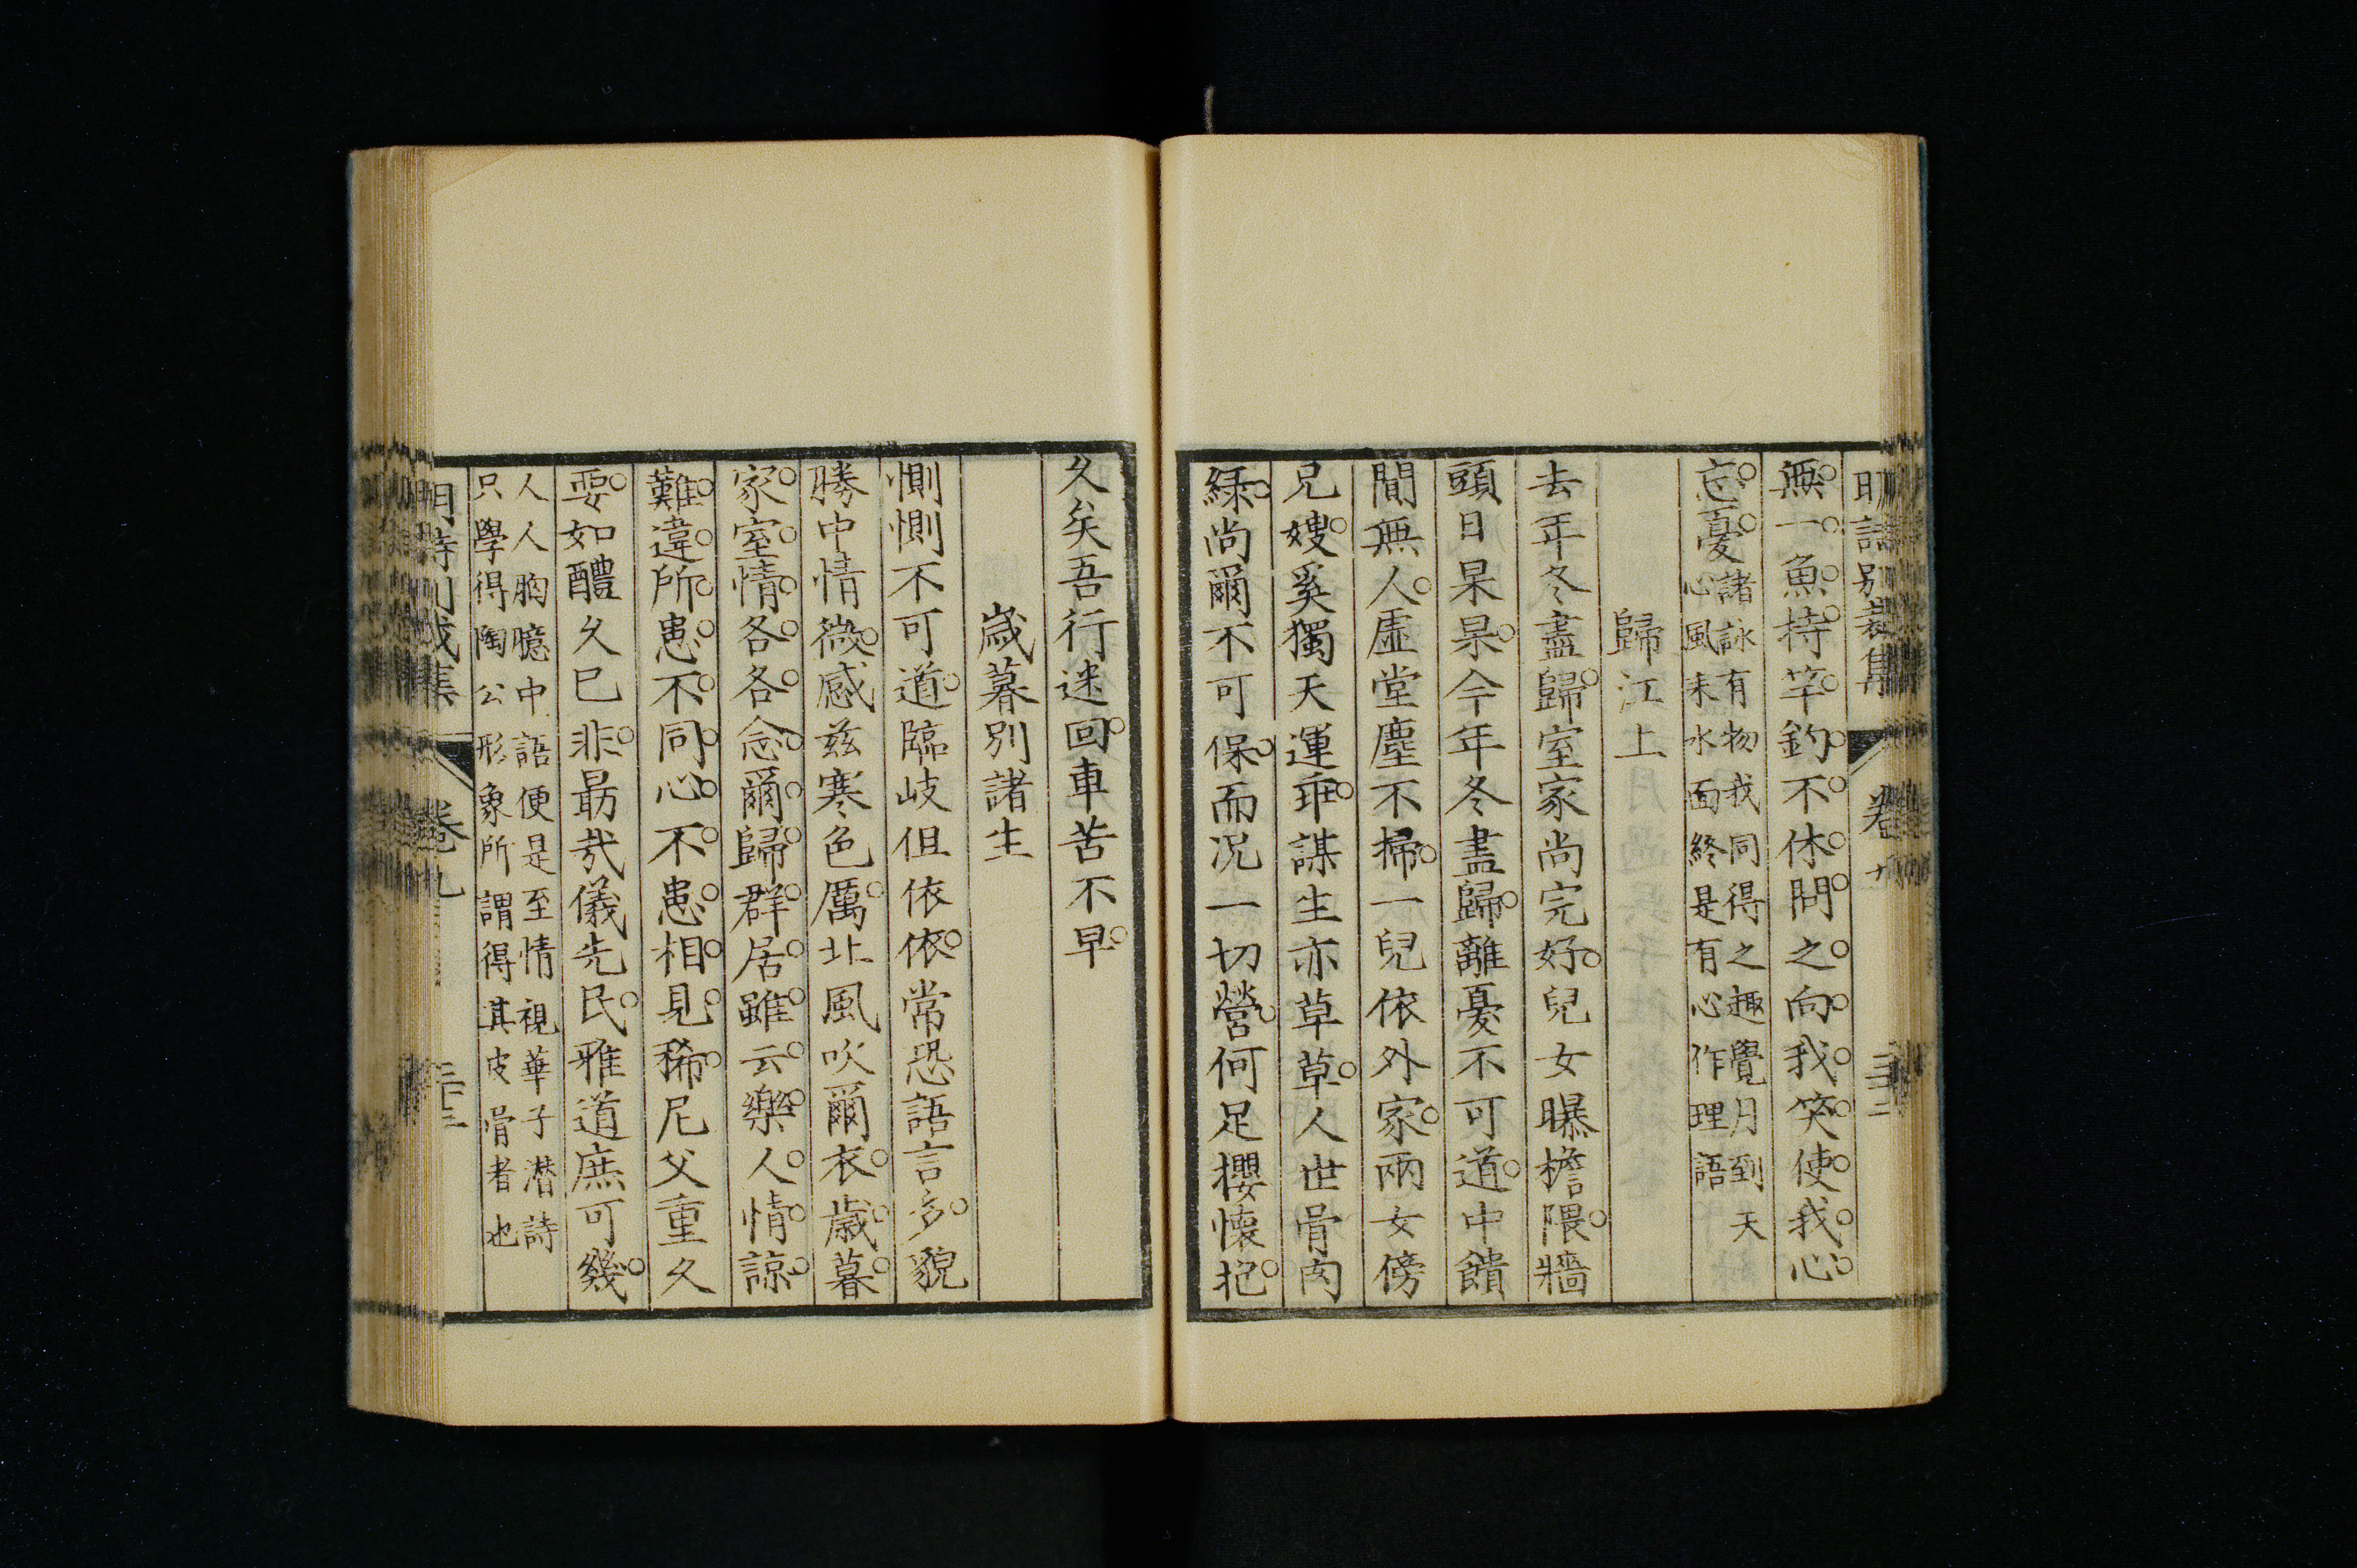 明詩別裁集 卷九 三十二
無一魚持竿釣不休問之向我笑使我心
忘憂諸詠有物我同得之趣覺月到天
心風來水面終是有心作理語
歸江上
去年冬盡歸室家尚完好兒女曝檐隈牆
頭日杲杲今年冬盡歸離憂不可道中饋
閒無人虛堂塵不掃一兒依外家兩女傍
兄嫂奚獨天運乖謀生亦草草人世骨肉
緣尚爾不可保而况一切營何足攖懷抱
久矣吾行迷回車苦不早
歲暮別諸生
惻惻不可道臨岐但依依常恐語言多貌
勝中情微感兹寒色厲北風吹爾衣歲暮
家室情各各念爾歸群居雖云樂人情諒
難違所患不同心不患相見稀尼父重久
要如醴久已非勗哉儀先民雅道庶可幾
人人胸臆中語便是至情視華子潛詩
只學得陶公形象所謂得其皮骨者也
明詩別裁集 卷九 三十三